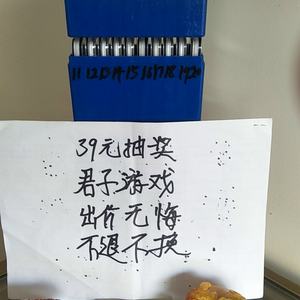 11 12 13 14 15 16 17 18 19 20
39元抽奖
君子游戏
出价无悔
不退不换